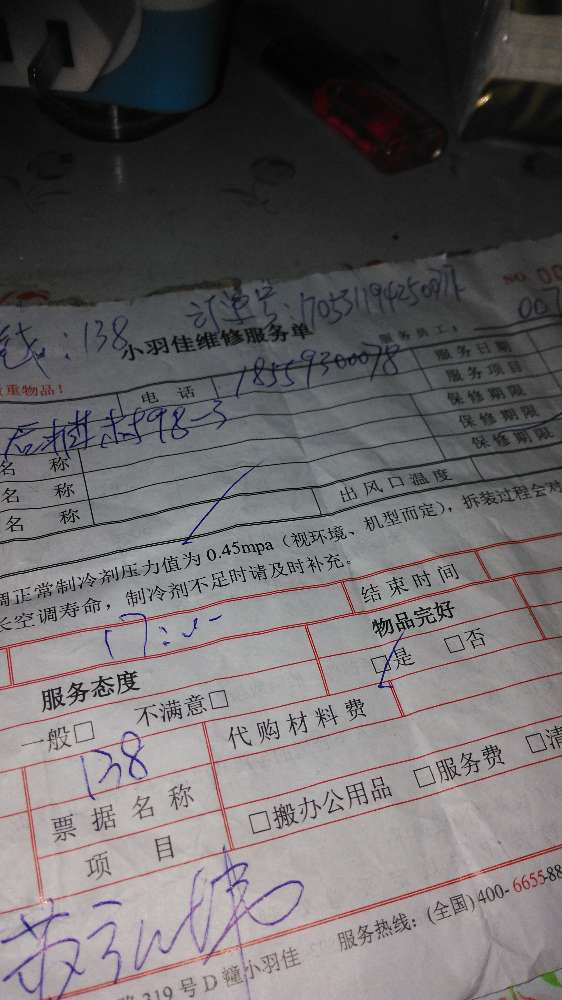 :138 订单号:17053119425007
NO 00
小羽佳维修服务单
服务员工: 007
重物品! 电 话 18559300078 服务日期
服务项目
后 村98-3 保修期限
名 称 保修期限
名 称 保修期限
名 称 出风口温度
调正常制冷剂压力值为 0.45mpa(视环境、机型而定),拆装过程会对
长空调寿命,制冷剂不足时请及时补充。
17: 结束时间
服务态度 物品完好
一般□ 不满意□ □是 □否
138 代购材料费
票据名称 □搬办公用品 □服务费 □清
项 目
319号D幢小羽佳 服务热线:(全国)400-6655-88